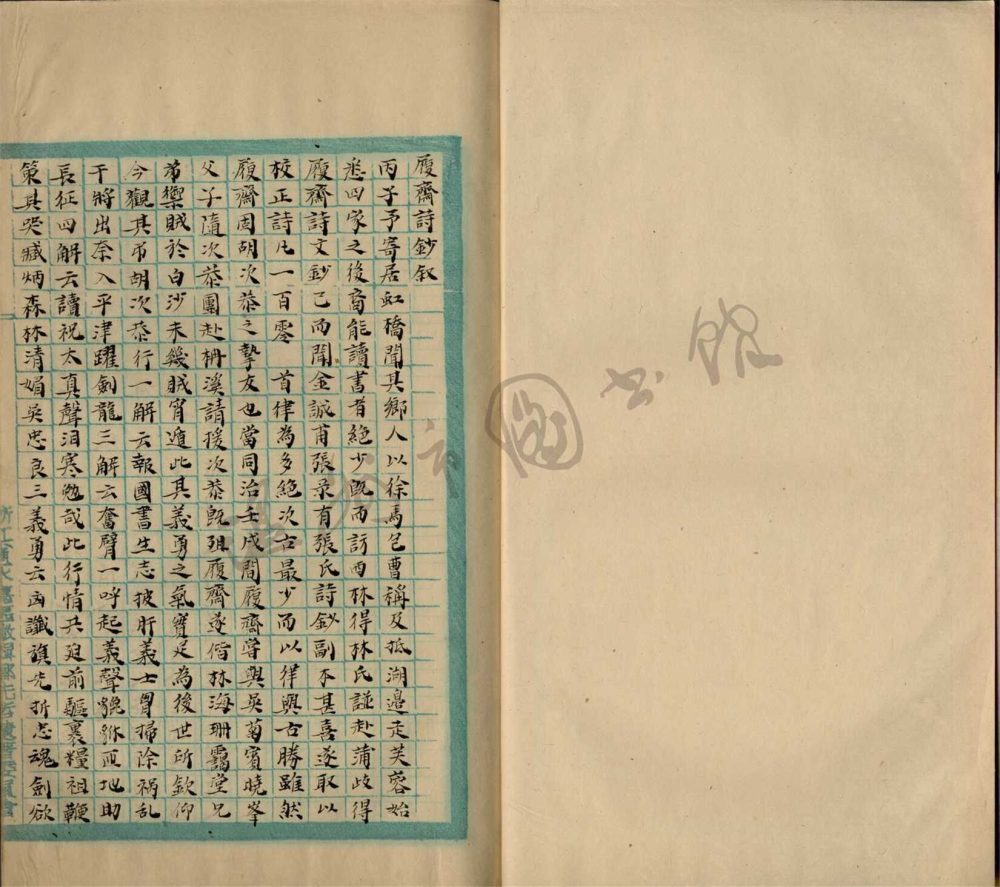 履齋詩鈔叙
丙子予寄居虹橋聞其鄉人以徐馬包曹稱及抵湖邉走芙蓉始
悉四家之後裔能讀書者絕少既而訪西林得林氏謎赴蒲歧得
履齋詩文鈔已而聞金誠甫張录有張氏詩鈔副本甚喜遂取以
校正詩凡一百零 首律為多絕次古最少而以律與古勝雖然
履齋固胡次菾之摯友也當同治壬戌間履齋嘗與吳菊賓曉峯
父子隨次菾團赴枏溪請援次菾既殂履齋遂偕林海珊靄堂兄
弟禦賊於白沙未幾賊宵遁此其義勇之氣寔足為後世所欽仰
今觀其弔胡次菾行一解云報國書生志披肝義士胷掃除祸乱
干將出奈入平津躍劍龍三解云奮臂一呼起義聲貔貅匝地助
長征四解云讀祝太真聲泪寒勉哉此行情共廹前驅裹糧祖鞭
策其哭臧炳森林清媚吳忠良三義勇云凶讖旗先折忠魂劍欲